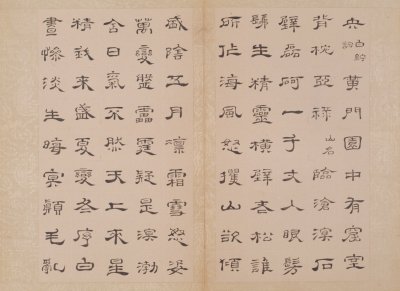 央 黃門園中有窟室
背枕亞祿山名臨滄溟石
壁磊砢一千丈人眼髣
髴生精靈橫壁古松誰
所作海風怒攫山欲傾
盛陰五月凜霜雪怒姿
萬變驚靁霆疑是溟渤
含日氣不然天上來星
精我來盛夏變冬序白
晝慘淡生晦冥顛毛亂